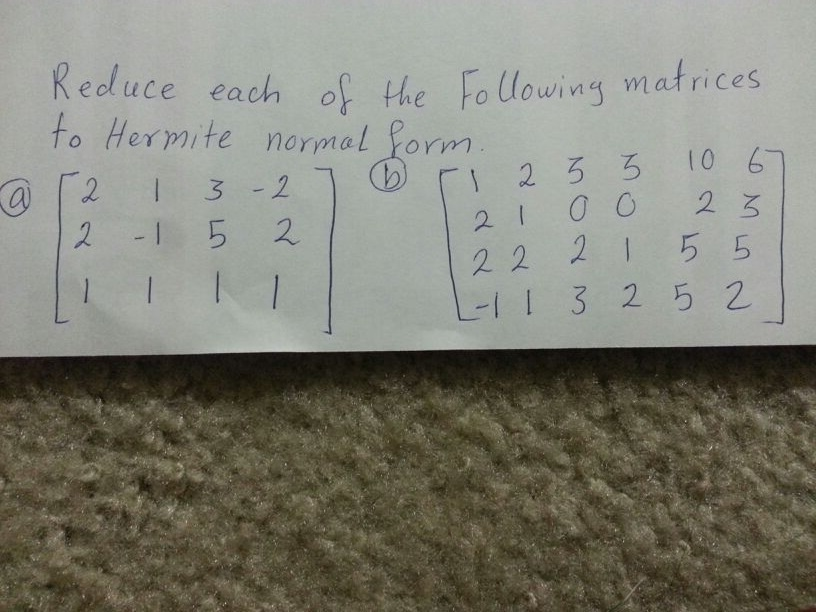 Reduce each of the Following matrices
to Hermite normal form.
ⓐ
2 1 3 -2
2 -1 5 2
1 1 1 1
ⓑ
1 2 3 3 10 6
2 1 0 0 2 3
2 2 2 1 5 5
-1 1 3 2 5 2